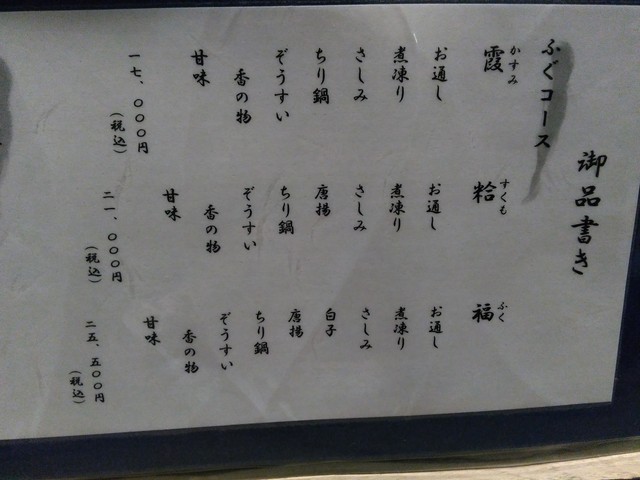 御品書き
ふぐコース
霞
かすみ
お通し
煮凍り
さしみ
ちり鍋
ぞうすい
香の物
甘味
一七、〇〇〇円
(税込)
粭
すくも
お通し
煮凍り
さしみ
唐揚
ちり鍋
ぞうすい
香の物
甘味
二一、〇〇〇円
(税込)
福
ふく
お通し
煮凍り
さしみ
白子
唐揚
ちり鍋
ぞうすい
香の物
甘味
二五、五〇〇円
(税込)